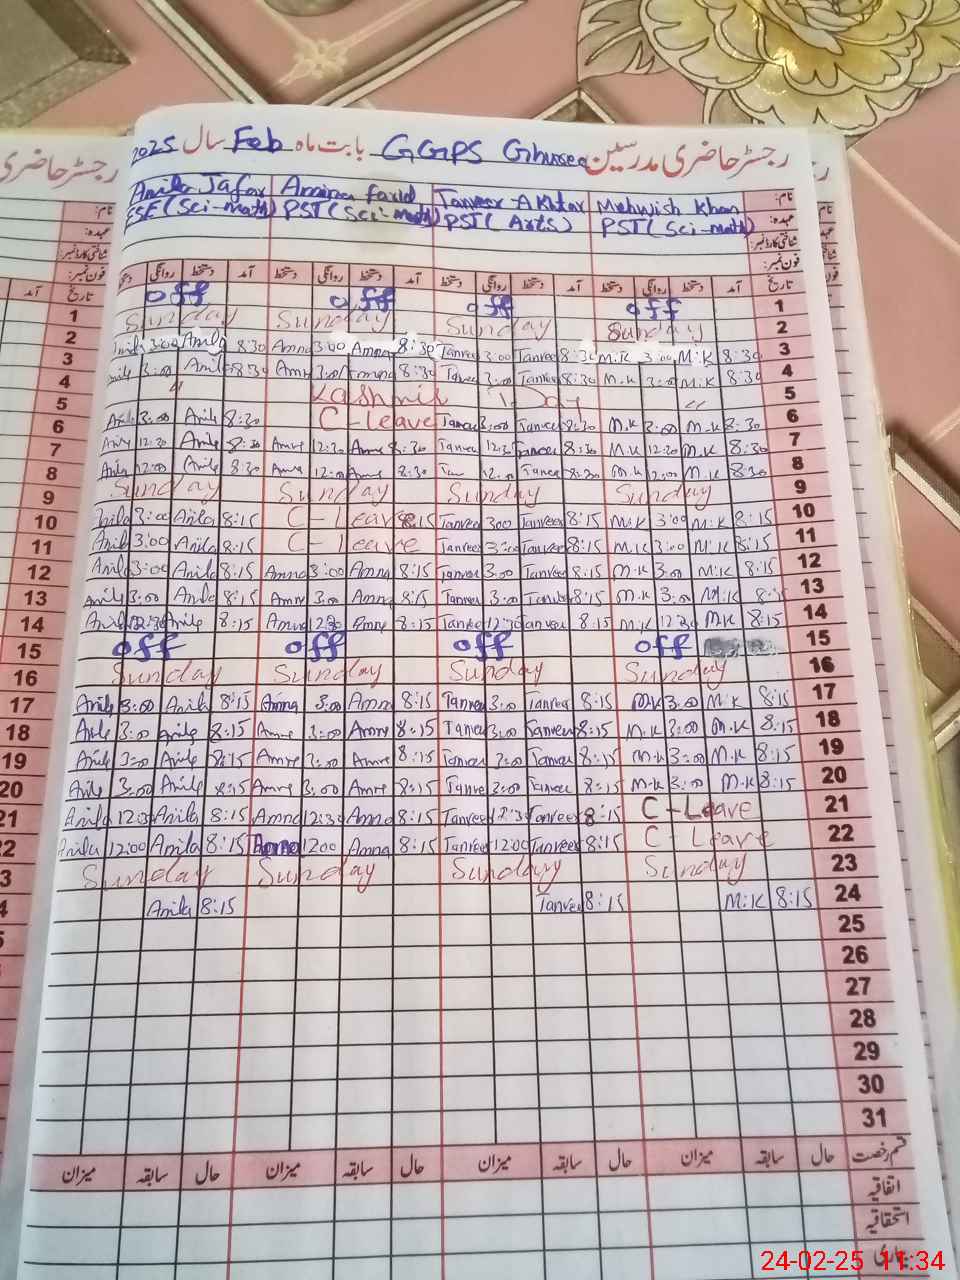 رجسٹر حاضری مدرسین GGPS بابت ماہ Feb سال 2025
رجسٹر حاضری
نام: Mehwish Khan Tanveer Akhtar Amina Farid Anila Jafar
عہدہ: PST (Sci-math) PST (Arts) PST (Sci-math) ESE (Sci-math)
شناختی کارڈ نمبر:
فون نمبر:
تاریخ آمد دستخط روانگی دستخط آمد دستخط روانگی دستخط آمد دستخط روانگی دستخط آمد دستخط روانگی دستخط
1 off off off off 1
2 Sunday Sunday Sunday Sunday
3 Anila 3:00 Anila 8:30 Amna 3:00 Amna 8:30 Tanveer 3:00 Tanveer 8:30 M.K 3:00 M.K 8:30 3
4 Anila 3:00 Anila 8:30 3:00 8:30 3:00 8:30 M.K 3:00 M.K 8:30 4
5 " Kashmir Day " 5
6 Anila 3:00 Anila 8:30 C-Leave 3:00 Tanveer 8:30 M.K 3:00 M.K 8:30 6
7 12:30 Anila 8:30 12:30 8:30 12:30 8:30 M.K 12:30 M.K 8:30 7
8 Anila 12:00 Anila 8:30 12:00 8:30 12:00 8:30 M.K 12:00 M.K 8:30 8
9 Sunday Sunday Sunday Sunday 9
10 Anila 3:00 Anila 8:15 C-Leave 8:15 Tanveer 3:00 Tanveer 8:15 M.K 3:00 M.K 8:15 10
11 Anila 3:00 Anila 8:15 C-Leave Tanveer 3:00 Tanveer 8:15 M.K 3:00 M.K 8:15 11
12 Anila 3:00 Anila 8:15 Amna 3:00 Amna 8:15 Tanveer 3:00 Tanveer 8:15 M.K 3:00 M.K 8:15 12
13 Anila 3:00 Anila 8:15 Amna 3:00 Amna 8:15 Tanveer 3:00 8:15 M.K 3:00 M.K 13
14 Anila 12:30 Anila 8:15 Amna 12:30 Amna 8:15 Tanveer 12:30 Tanveer 8:15 M.K 12:30 M.K 8:15 14
15 off off off off 15
16 Sunday Sunday Sunday Sunday 16
17 Anila 3:00 Anila 8:15 Amna 3:00 Amna 8:15 Tanveer 3:00 Tanveer 8:15 M.K 3:00 M.K 8:15 17
18 3:00 8:15 3:00 8:15 Tanveer 3:00 Tanveer 8:15 M.K 3:00 M.K 8:15 18
19 3:00 8:15 3:00 8:15 3:00 8:15 M.K 3:00 M.K 8:15 19
20 3:00 8:15 3:00 8:15 3:00 8:15 M.K 3:00 M.K 8:15 20
21 Anila 12:30 Anila 8:15 Amna 12:30 Amna 8:15 Tanveer 12:30 Tanveer 8:15 C-Leave 21
22 Anila 12:00 Anila 8:15 Amna 12:00 Amna 8:15 Tanveer 12:00 Tanveer 8:15 C-Leave 22
23 Sunday Sunday Sunday Sunday 23
Anila 8:15 Tanveer 8:15 M.K 8:15 24
25
26
27
28
29
30
31
قسم رخصت حال سابقہ میزان حال سابقہ میزان حال سابقہ میزان حال سابقہ میزان
اتفاقیہ
استحقاقیہ
24-02-25 11:34